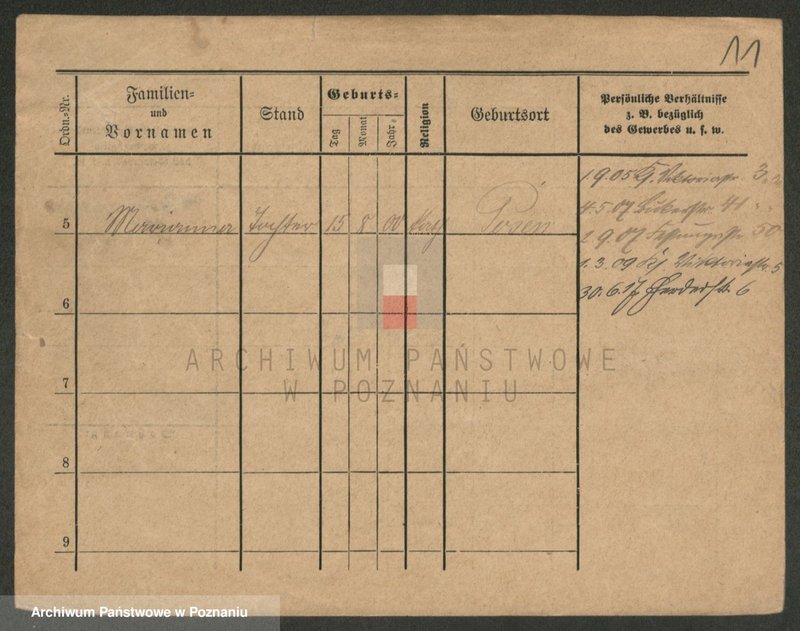 11
Ordn.-Nr.
Familien-
und
Vornamen
Stand
Geburts-
Tag
Monat
Jahr-
Religion
Geburtsort
Persönliche Verhältnisse
z. B. bezüglich
des Gewerbes u. s. w.
5 Marianna Tochter 15 8 00 kath Posen
1.9.05 Viktoriastr.
4.5.07 41
2 9.07 30
1.3.09 Viktoriastr. 5
30.6.17 Herderstr. 6
6
7
8
9
ARCHIWUM PAŃSTWOWE
W POZNANIU
Archiwum Państwowe w Poznaniu